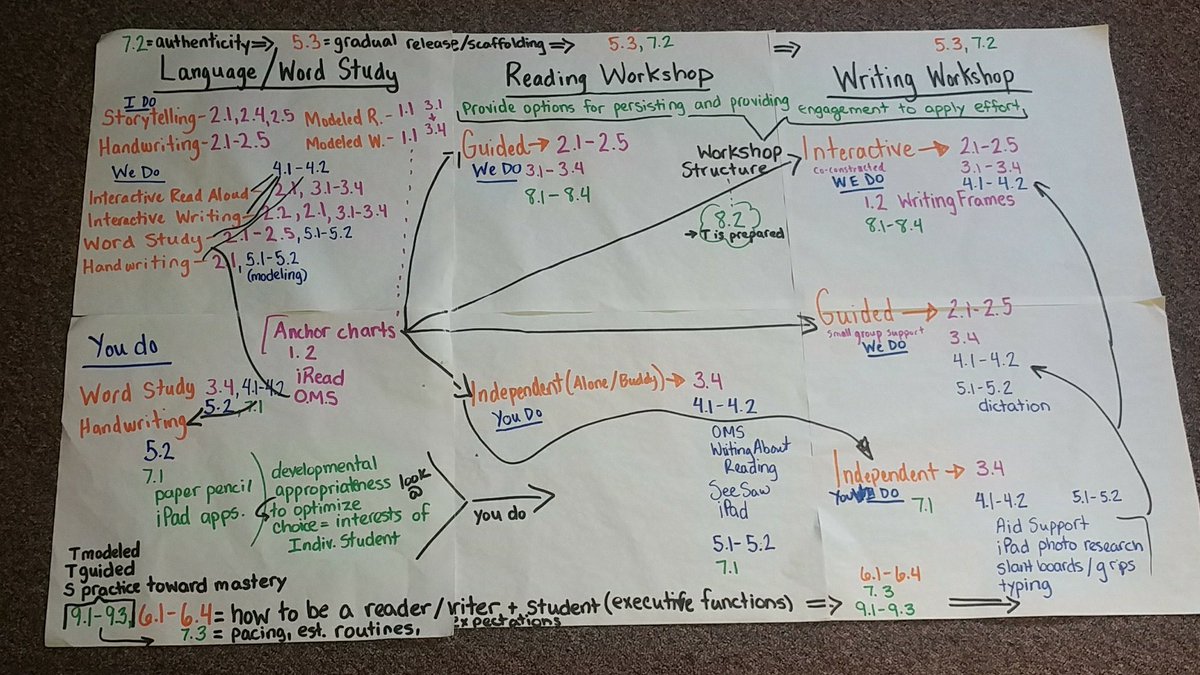 7.2 = authenticity ⇒ 5.3 = gradual release/scaffolding ⇒ 5.3, 7.2 ⇒ 5.3, 7.2
Language/Word Study
I DO
Storytelling - 2.1, 2.4, 2.5
Handwriting - 2.1-2.5
Modeled R. - 1.1 3.1
+
Modeled W. - 1.1 3.4
We Do
4.1-4.2
Interactive Read Aloud - 2.1, 3.1-3.4
Interactive Writing - 2.2, 2.1, 3.1-3.4
Word Study - 2.1-2.5, 5.1-5.2
Handwriting - 2.1, 5.1-5.2
(modeling)
Anchor charts
1.2
iRead
O.M.S
You do
Word Study 3.4, 4.1-4.2
5.2, 7.1
Handwriting
5.2
7.1
paper pencil
iPad apps.
developmental
appropriateness
to optimize
choice = interests of
Indiv. Student
look @
you do
Reading Workshop
Provide options for persisting and providing engagement to apply effort,
Guided → 2.1-2.5
We Do 3.1-3.4
8.1-8.4
Workshop
Structure
8.2
→ T is prepared
Independent (Alone/Buddy) → 3.4
You Do
4.1-4.2
OMS
Writing About
Reading
SeeSaw
iPad
5.1-5.2
7.1
Writing Workshop
Interactive → 2.1-2.5
Co-constructed 3.1-3.4
WE DO 4.1-4.2
1.2 Writing Frames
8.1-8.4
Guided → 2.1-2.5
Small group support 3.4
We Do
4.1-4.2
5.1-5.2
dictation
Independent → 3.4
You DO 7.1 4.1-4.2 5.1-5.2
Aid Support
iPad photo research
slant boards/grips
typing
T modeled
T guided
S practice toward mastery
9.1-9.3, 6.1-6.4 = how to be a reader/writer + Student (executive functions) ⇒
7.3 = pacing, est. routines,
expectations
6.1-6.4
7.3
9.1-9.3